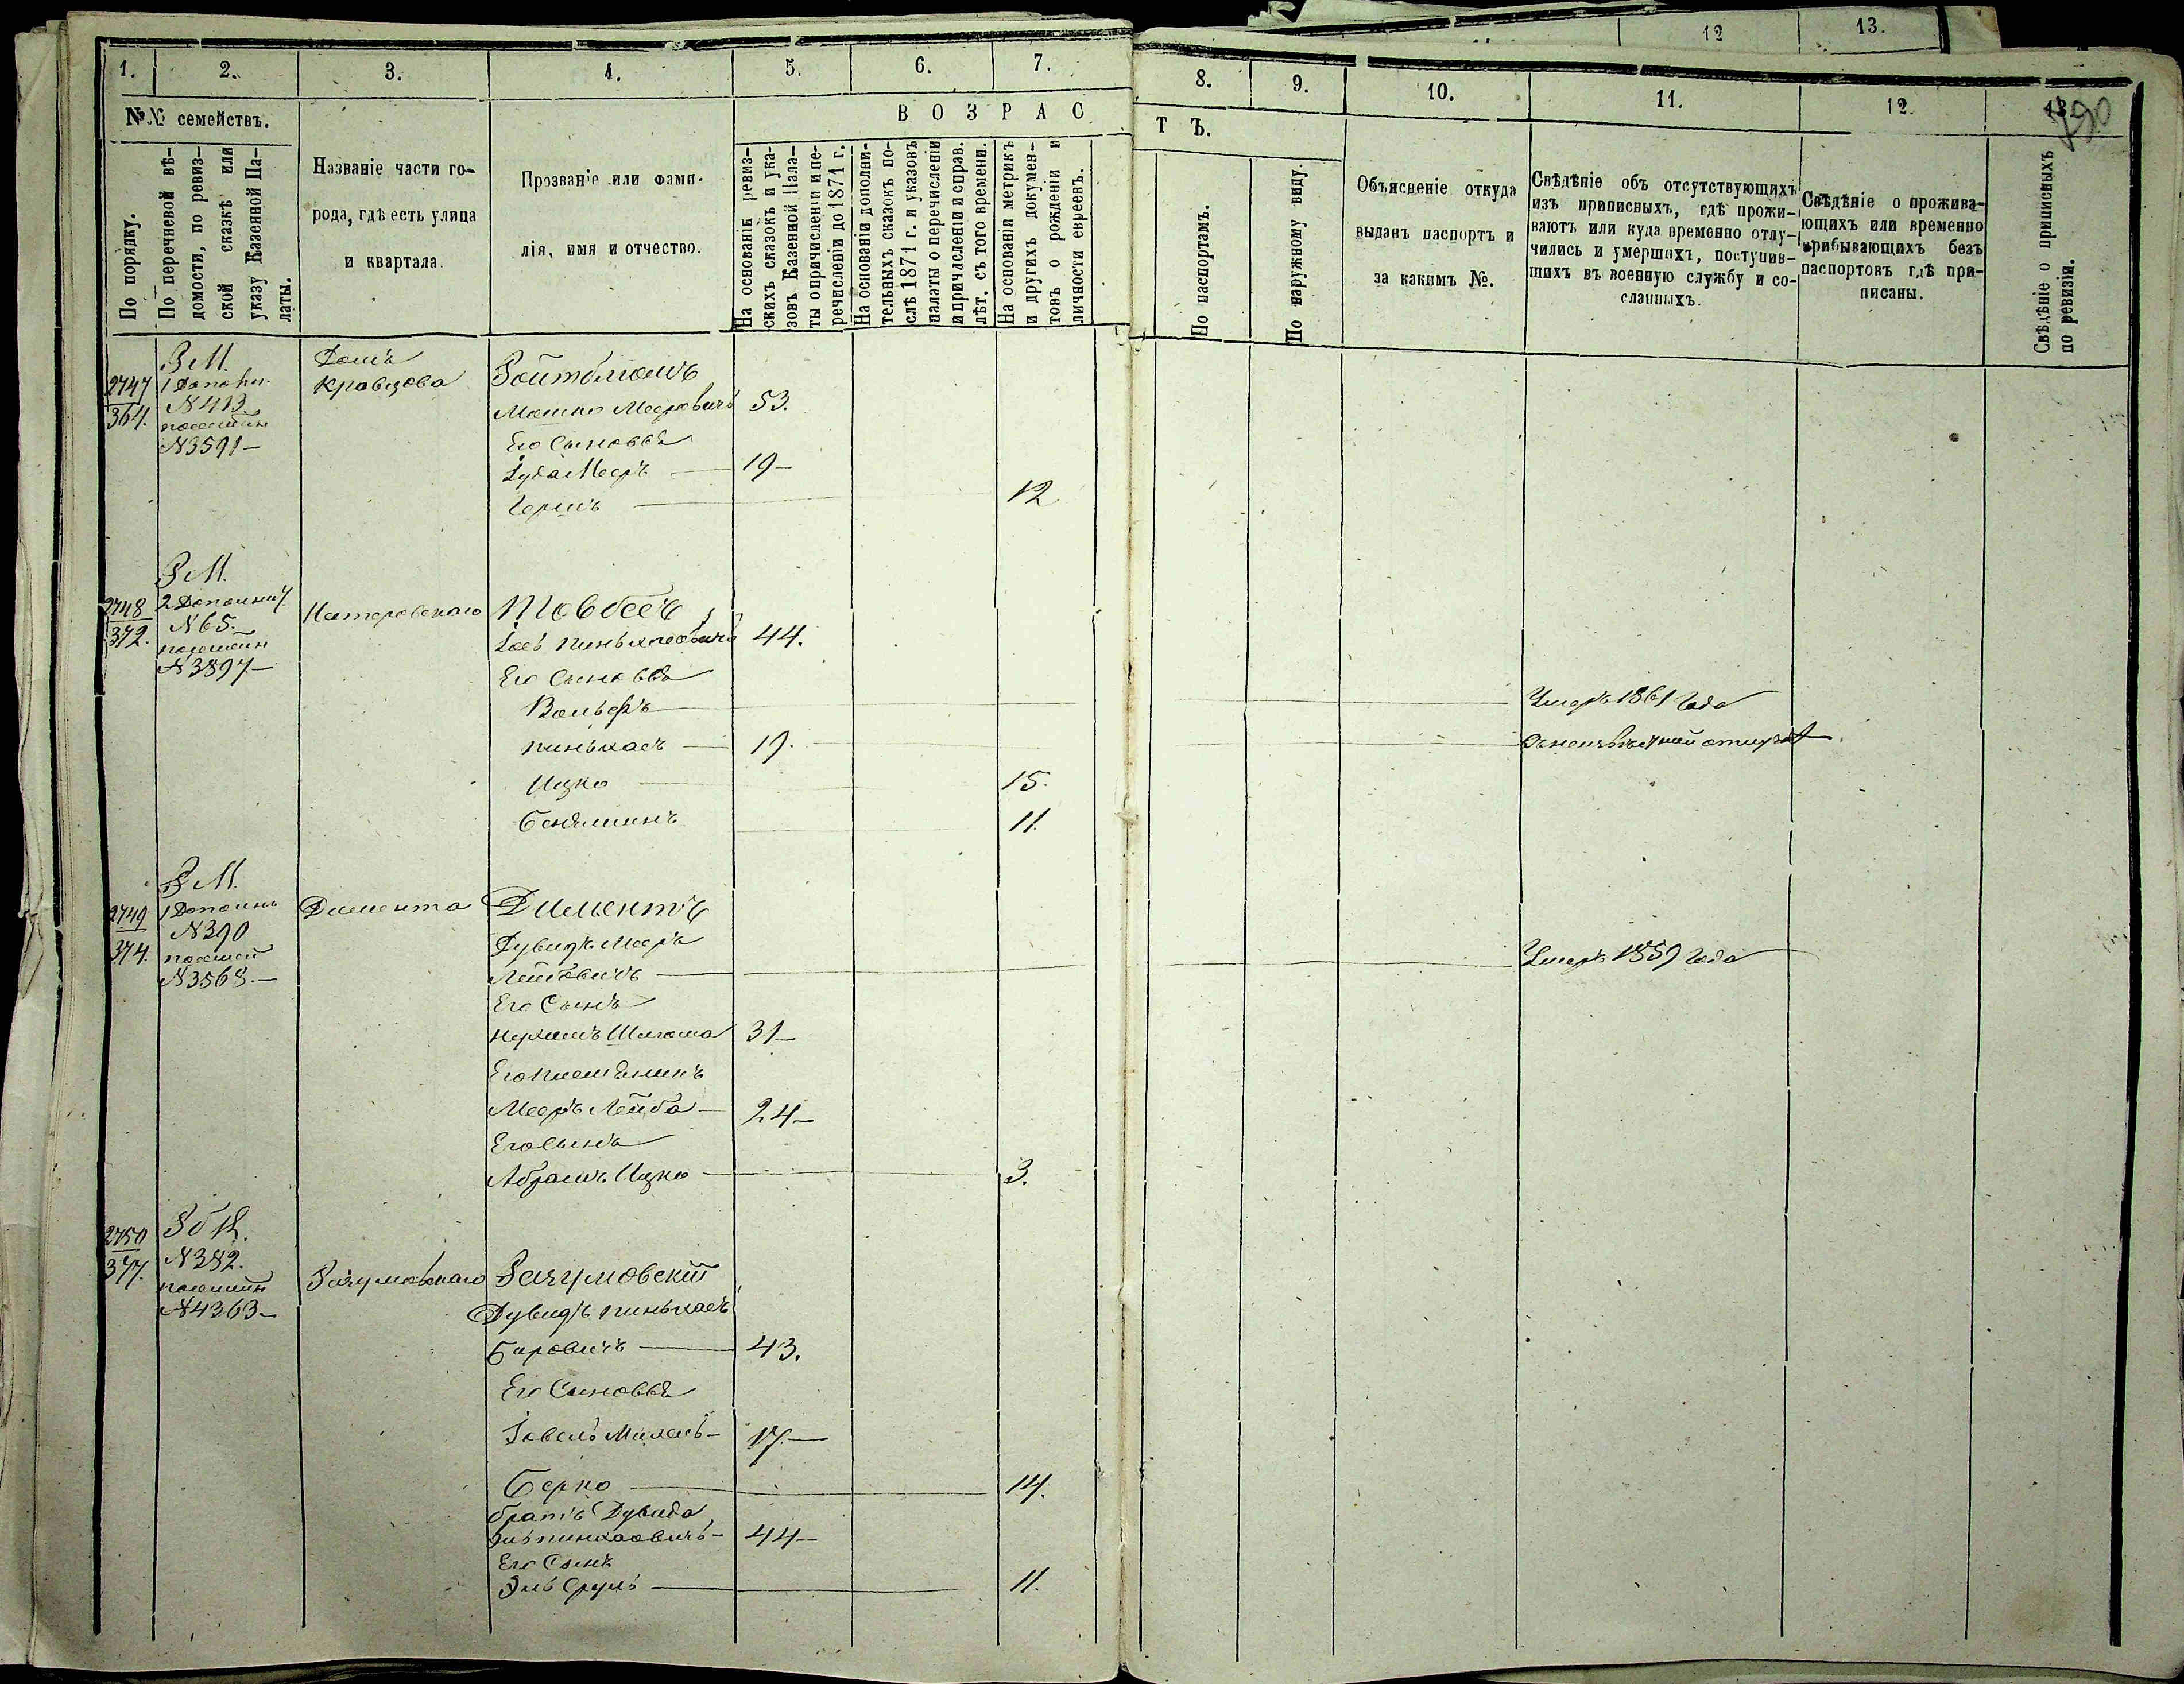 12 13.
1. 2. 3. 4. 5. 6. 7. 8. 9. 10. 11. 12. 13.
790
№№ семействъ.
По порядку.
По перечневой вѣ-
домости, по ревиз-
ской сказкѣ или
указу Казенной Па-
латы.
Названіе части го-
рода, гдѣ есть улица
и квартала.
Прозваніе или фами-
лія, имя и отчество.
ВОЗРАС
ТЪ.
На основаніи ревиз-
скихъ сказокъ и ука-
зовъ Казенной Пала-
ты о причисленіи и пе-
речисленіи до 1871 г.
На основаніи дополни-
тельныхъ сказокъ по-
слѣ 1871 г. и указовъ
палаты о перечисленіи
и причисленіи и справ.
лѣт. съ того времени.
На основаніи метрикъ
и другихъ докумен-
товъ о рожденіи и
личности евреевъ.
По паспортамъ.
По наружному виду.
Объясненіе откуда
выданъ паспортъ и
за какимъ №.
Свѣдѣніе объ отсутствующихъ
изъ приписныхъ, гдѣ прожи-
ваютъ или куда временно отлу-
чились и умершихъ, поступив-
шихъ въ военную службу и со-
сланныхъ.
Свѣдѣніе о прожива-
ющихъ или временно
прибывающихъ безъ
паспортовъ гдѣ при-
писаны.
Свѣдѣніе о приписныхъ
по ревизіи.
2747
364.
1 Дополн.
N 413
N 3591 –
Домъ
Кравцова
Мошко Мееровичъ 53.
Его Сыновья
Іуда Мееръ 19 –
Гершъ 12
2748
372.
2 Дополнит.
N 65.
N 3897 –
Товбесъ
Іось Пиньхасовичъ 44.
Его Сыновья
Вольфъ Умеръ 1861 года
Пиньхасъ 19.
Ицко 15.
Беньяминъ 11.
2749
374.
1 Дополн
N 390
N 3568. –
Димента
Диментъ
Дувидъ Мееръ
Лейбовичъ Умеръ 1859 года
Его Сынъ
Нухимъ Шлиома 31 –
Его племянникъ
Мееръ Лейба 24 –
Его сынъ
Абрамъ Ицко 3.
2750
377.
N 382.
N 4363 –
Разумовскаго
Разумовскій
Дувидъ Пиньхасъ
Беровичъ 43.
Его Сыновья
17. –
Берко 14.
братъ Дувида
44 –
Его Сынъ
Эль Сруль 11.